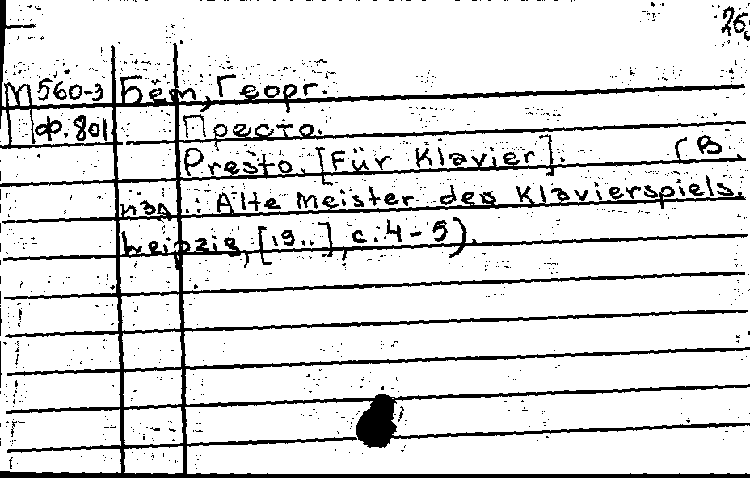 26
М 560-з Бём, Георг.
П ф. 801 Престо.
Presto. [Für Klavier]. (В
изд.: Alte Meister des Klavierspiels.
Leipzig, [19..], с. 4-5).